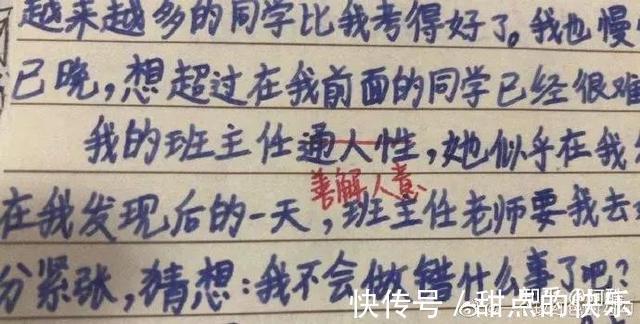 越来越多的同学比我考得好了。我也慢
已晚，想超过在我前面的同学已经很难
我的班主任通人性，她似乎在我
善解人意
在我发现后的一天，班主任老师要我去
分紧张，猜想：我不会做错什么事了吧？
快传号 / 甜点的快乐
知乎